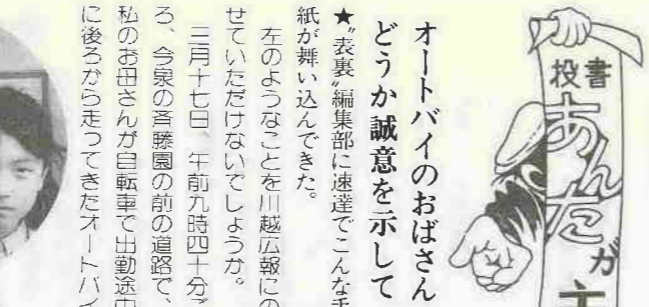 投書
あんたが主
オートバイのおばさん
どうか誠意を示して
★〝表裏〟編集部に速達でこんな手
紙が舞い込んできた。
左のようなことを川越広報にの
せていただけないでしょうか。
三月十七日、午前九時四十分ご
ろ、今泉の斉藤園の前の道路で、
私のお母さんが自転車で出勤途中
に後ろから走ってきたオートバイ